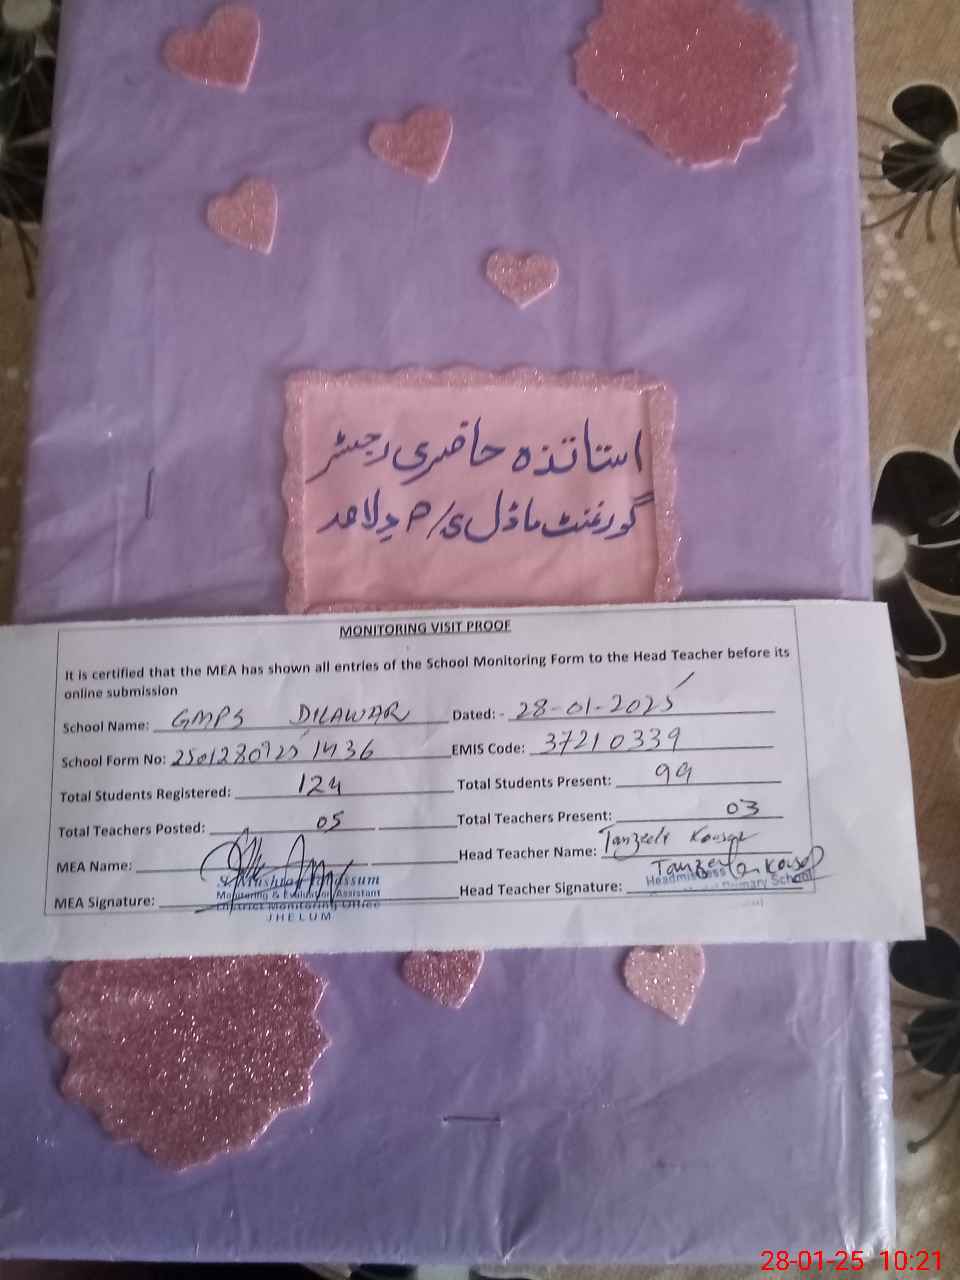 اساتذہ حاضری رجسٹر
گورنمنٹ ماڈل پی/م دلاور
MONITORING VISIT PROOF
It is certified that the MEA has shown all entries of the School Monitoring Form to the Head Teacher before its
online submission
School Name: GMPS DILAWAR Dated: - 28-01-2025
School Form No: 2501280925 1436 EMIS Code: 37210339
Total Students Registered: 124 Total Students Present: 99
Total Teachers Posted: 05 Total Teachers Present: 03
MEA Name: Head Teacher Name: Tanzeela Kousar
MEA Signature: Head Teacher Signature: Tanzeela Kousar
Monitoring & Evaluation Assistant
District Monitoring Office
JHELUM
Headmistress
Primary School
28-01-25 10:21